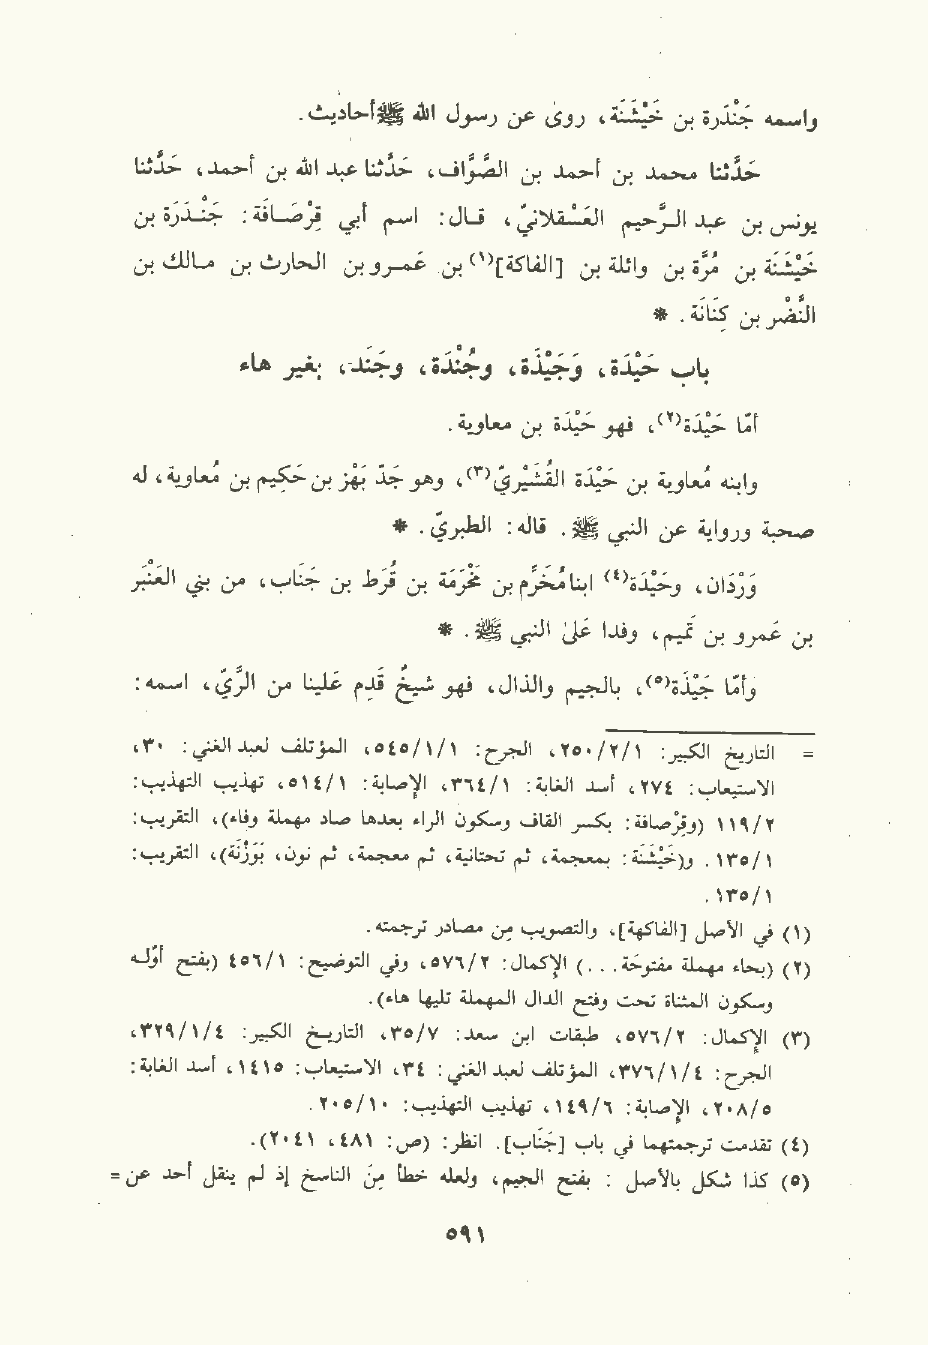 واسمه جَنْدَرة بن خَيْشَنَة، روىٰ عن رسول الله ﷺ أحاديث.
حَدَّثنا محمد بن أحمد بن الصَّوَّاف، حَدَّثنا عبد الله بن أحمد، حَدَّثنا
يونس بن عبد الرَّحيم العَسْقلانيّ، قال: اسم أبي قِرْصَافَة: جَنْدَرَة بن
خَيْشَنَة بن مُرَّة بن وائلة بن [الفاكة](١) بن عَمرو بن الحارث بن مالك بن
النَّضْر بن كِنَانَة. *
باب حَيْدَة، وَجَيْذَة، وجُنْدَة، وجَنَد، بغير هاء
أمّا حَيْدَة(٢)، فهو حَيْدَة بن معاوية.
وابنه مُعاوية بن حَيْدَة القُشَيْريّ(٣)، وهو جَدّ بَهْز بن حَكِيم بن مُعاوية، له
صحبة ورواية عن النبي ﷺ. قاله: الطبريّ. *
وَرْدَان، وحَيْدَة(٤) ابنا مُخَرِّم بن مَخْرَمَة بن قُرَط بن جَنَاب، من بني العَنْبَر
بن عَمرو بن تَميم، وفدا عَلىٰ النبي ﷺ. *
وأمّا جَيْذَة(٥)، بالجيم والذال، فهو شيخٌ قَدِم عَلينا من الرَّيّ، اسمه:
= التاريخ الكبير: ٢٥٠/٢/١، الجرح: ٥٤٥/١/١، المؤتلف لعبد الغني: ٣٠،
الاستيعاب: ٢٧٤، أسد الغابة: ٣٦٤/١، الإصابة: ٥١٤/١، تهذيب التهذيب:
١١٩/٢ (وقِرْصافة: بكسر القاف وسكون الراء بعدها صاد مهملة وفاء)، التقريب:
١٣٥/١. و(خَيْشَنَة: بمعجمة، ثم تحتانية، ثم معجمة، ثم نون، بَوَزْنَة)، التقريب:
١٣٥/١.
(١) في الأصل [الفاكهة]، والتصويب مِن مصادر ترجمته.
(٢) (بحاء مهملة مفتوحَة. . .) الإكمال: ٥٧٦/٢، وفي التوضيح: ٤٥٦/١ (بفتح أوَّله
وسكون المثناة تحت وفتح الدال المهملة تليها هاء).
(٣) الإكمال: ٥٧٦/٢، طبقات ابن سعد: ٣٥/٧، التاريخ الكبير: ٣٢٩/١/٤،
الجرح: ٣٧٦/١/٤، المؤتلف لعبد الغني: ٣٤، الاستيعاب: ١٤١٥، أسد الغابة:
٢٠٨/٥، الإصابة: ١٤٩/٦، تهذيب التهذيب: ٢٠٥/١٠.
(٤) تقدمت ترجمتهما في باب [جَنَاب]. انظر: (ص: ٤٨١، ٢٠٤١).
(٥) كذا شكل بالأصل : بفتح الجيم، ولعله خطأ مِنَ الناسخ إذ لم ينقل أحد عن=
٥٩١